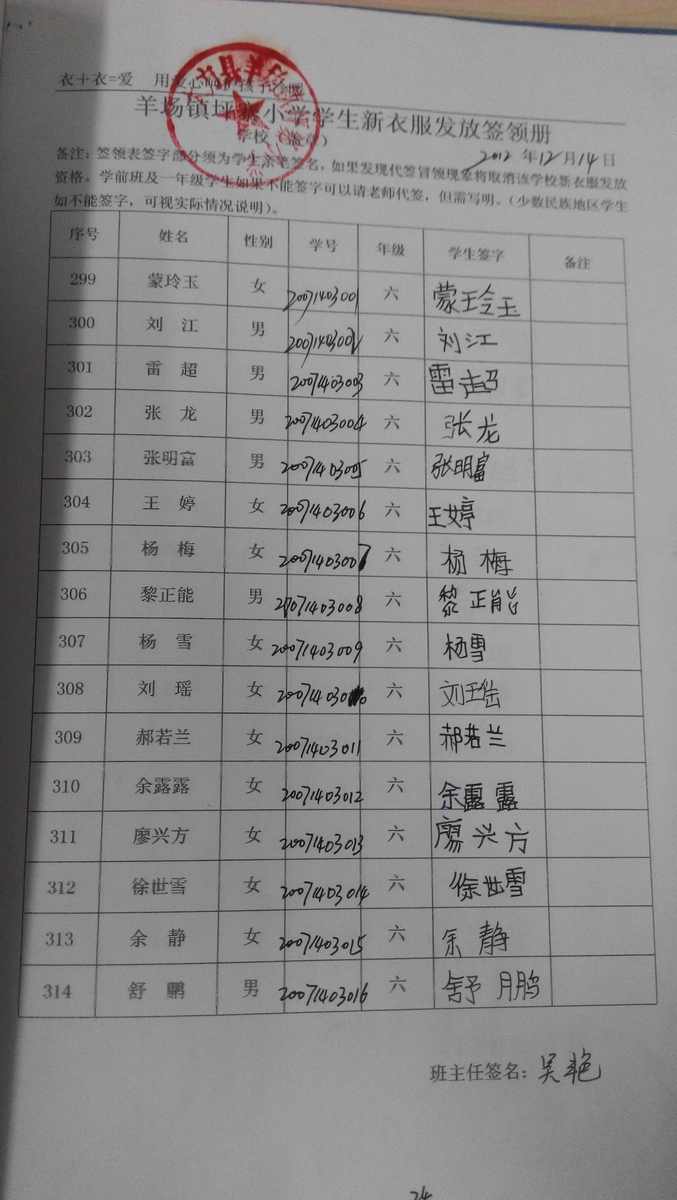 衣+衣=爱 用爱心呵护孩子
羊场镇坪 小学学生新衣服发放签领册
学校（盖章）
2012 年 12 月 14 日
备注：签领表签字部分须为学生亲笔签名，如果发现代签冒领现象将取消该学校新衣服发放
资格。学前班及一年级学生如果不能签字可以请老师代签，但需写明。（少数民族地区学生
如不能签字，可视实际情况说明）。
序号 姓名 性别 学号 年级 学生签字 备注
299 蒙玲玉 女 20071403001 六 蒙玲玉
300 刘 江 男 20071403002 六 刘江
301 雷 超 男 20071403003 六 雷超
302 张 龙 男 20071403004 六 张龙
303 张明富 男 20071403005 六 张明富
304 王 婷 女 20071403006 六 王婷
305 杨 梅 女 20071403007 六 杨 梅
306 黎正能 男 20071403008 六 黎正能
307 杨 雪 女 20071403009 六 杨雪
308 刘 瑶 女 20071403010 六 刘瑶
309 郝若兰 女 20071403011 六 郝若兰
310 余露露 女 20071403012 六 余露露
311 廖兴方 女 20071403013 六 廖兴方
312 徐世雪 女 20071403014 六 徐世雪
313 余 静 女 20071403015 六 余 静
314 舒 鹏 男 20071403016 六 舒 鹏
班主任签名：吴艳